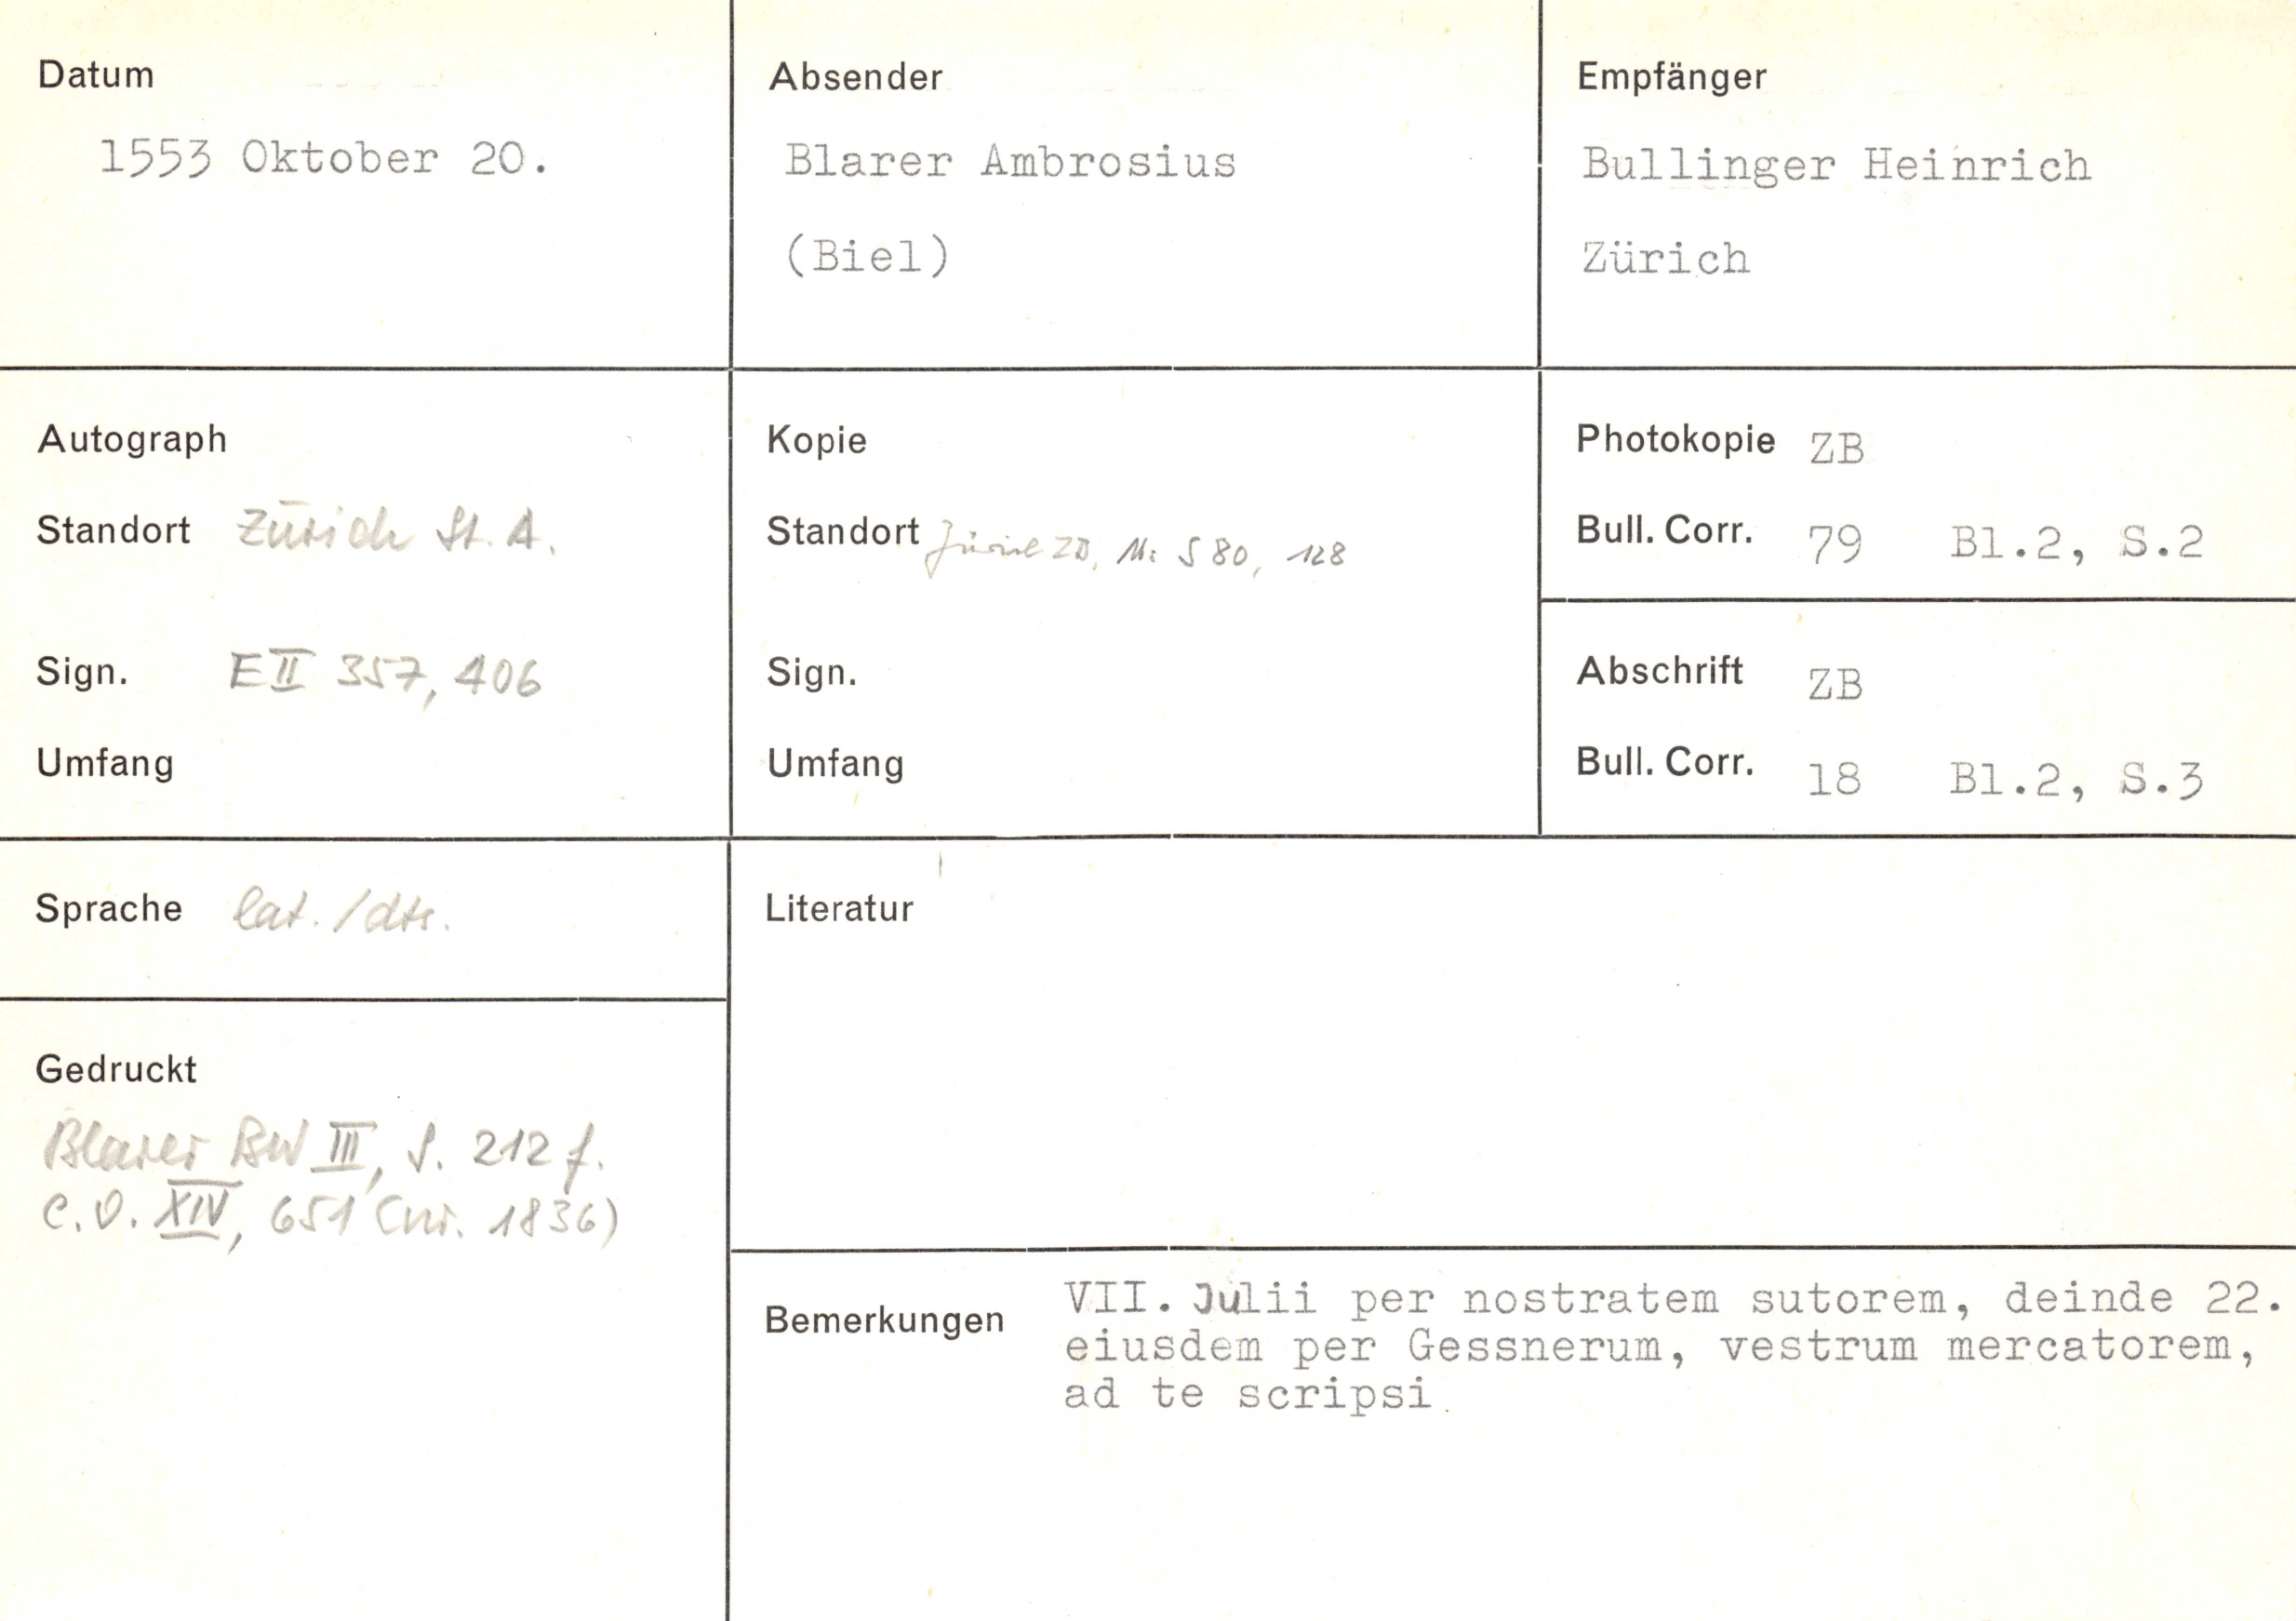 Datum
1553 Oktober 20.
Absender
Blarer Ambrosius
(Biel)
Empfänger
Bullinger Heinrich
Zürich
Autograph
Standort Zürich St. A.
Sign. E II 357, 406
Umfang
Kopie
Standort Zürich ZB, Ms S 80, 128
Sign.
Umfang
Photokopie ZB
Bull. Corr. 79 Bl.2, S.2
Abschrift ZB
Bull. Corr. 18 Bl.2, S.3
Sprache lat./dts.
Gedruckt
Blarer BW III, S. 212 f.
C.O. XIV, 651 (nr. 1836)
Literatur
Bemerkungen
VII. Julii per nostratem sutorem, deinde 22.
eiusdem per Gessnerum, vestrum mercatorem,
ad te scripsi.